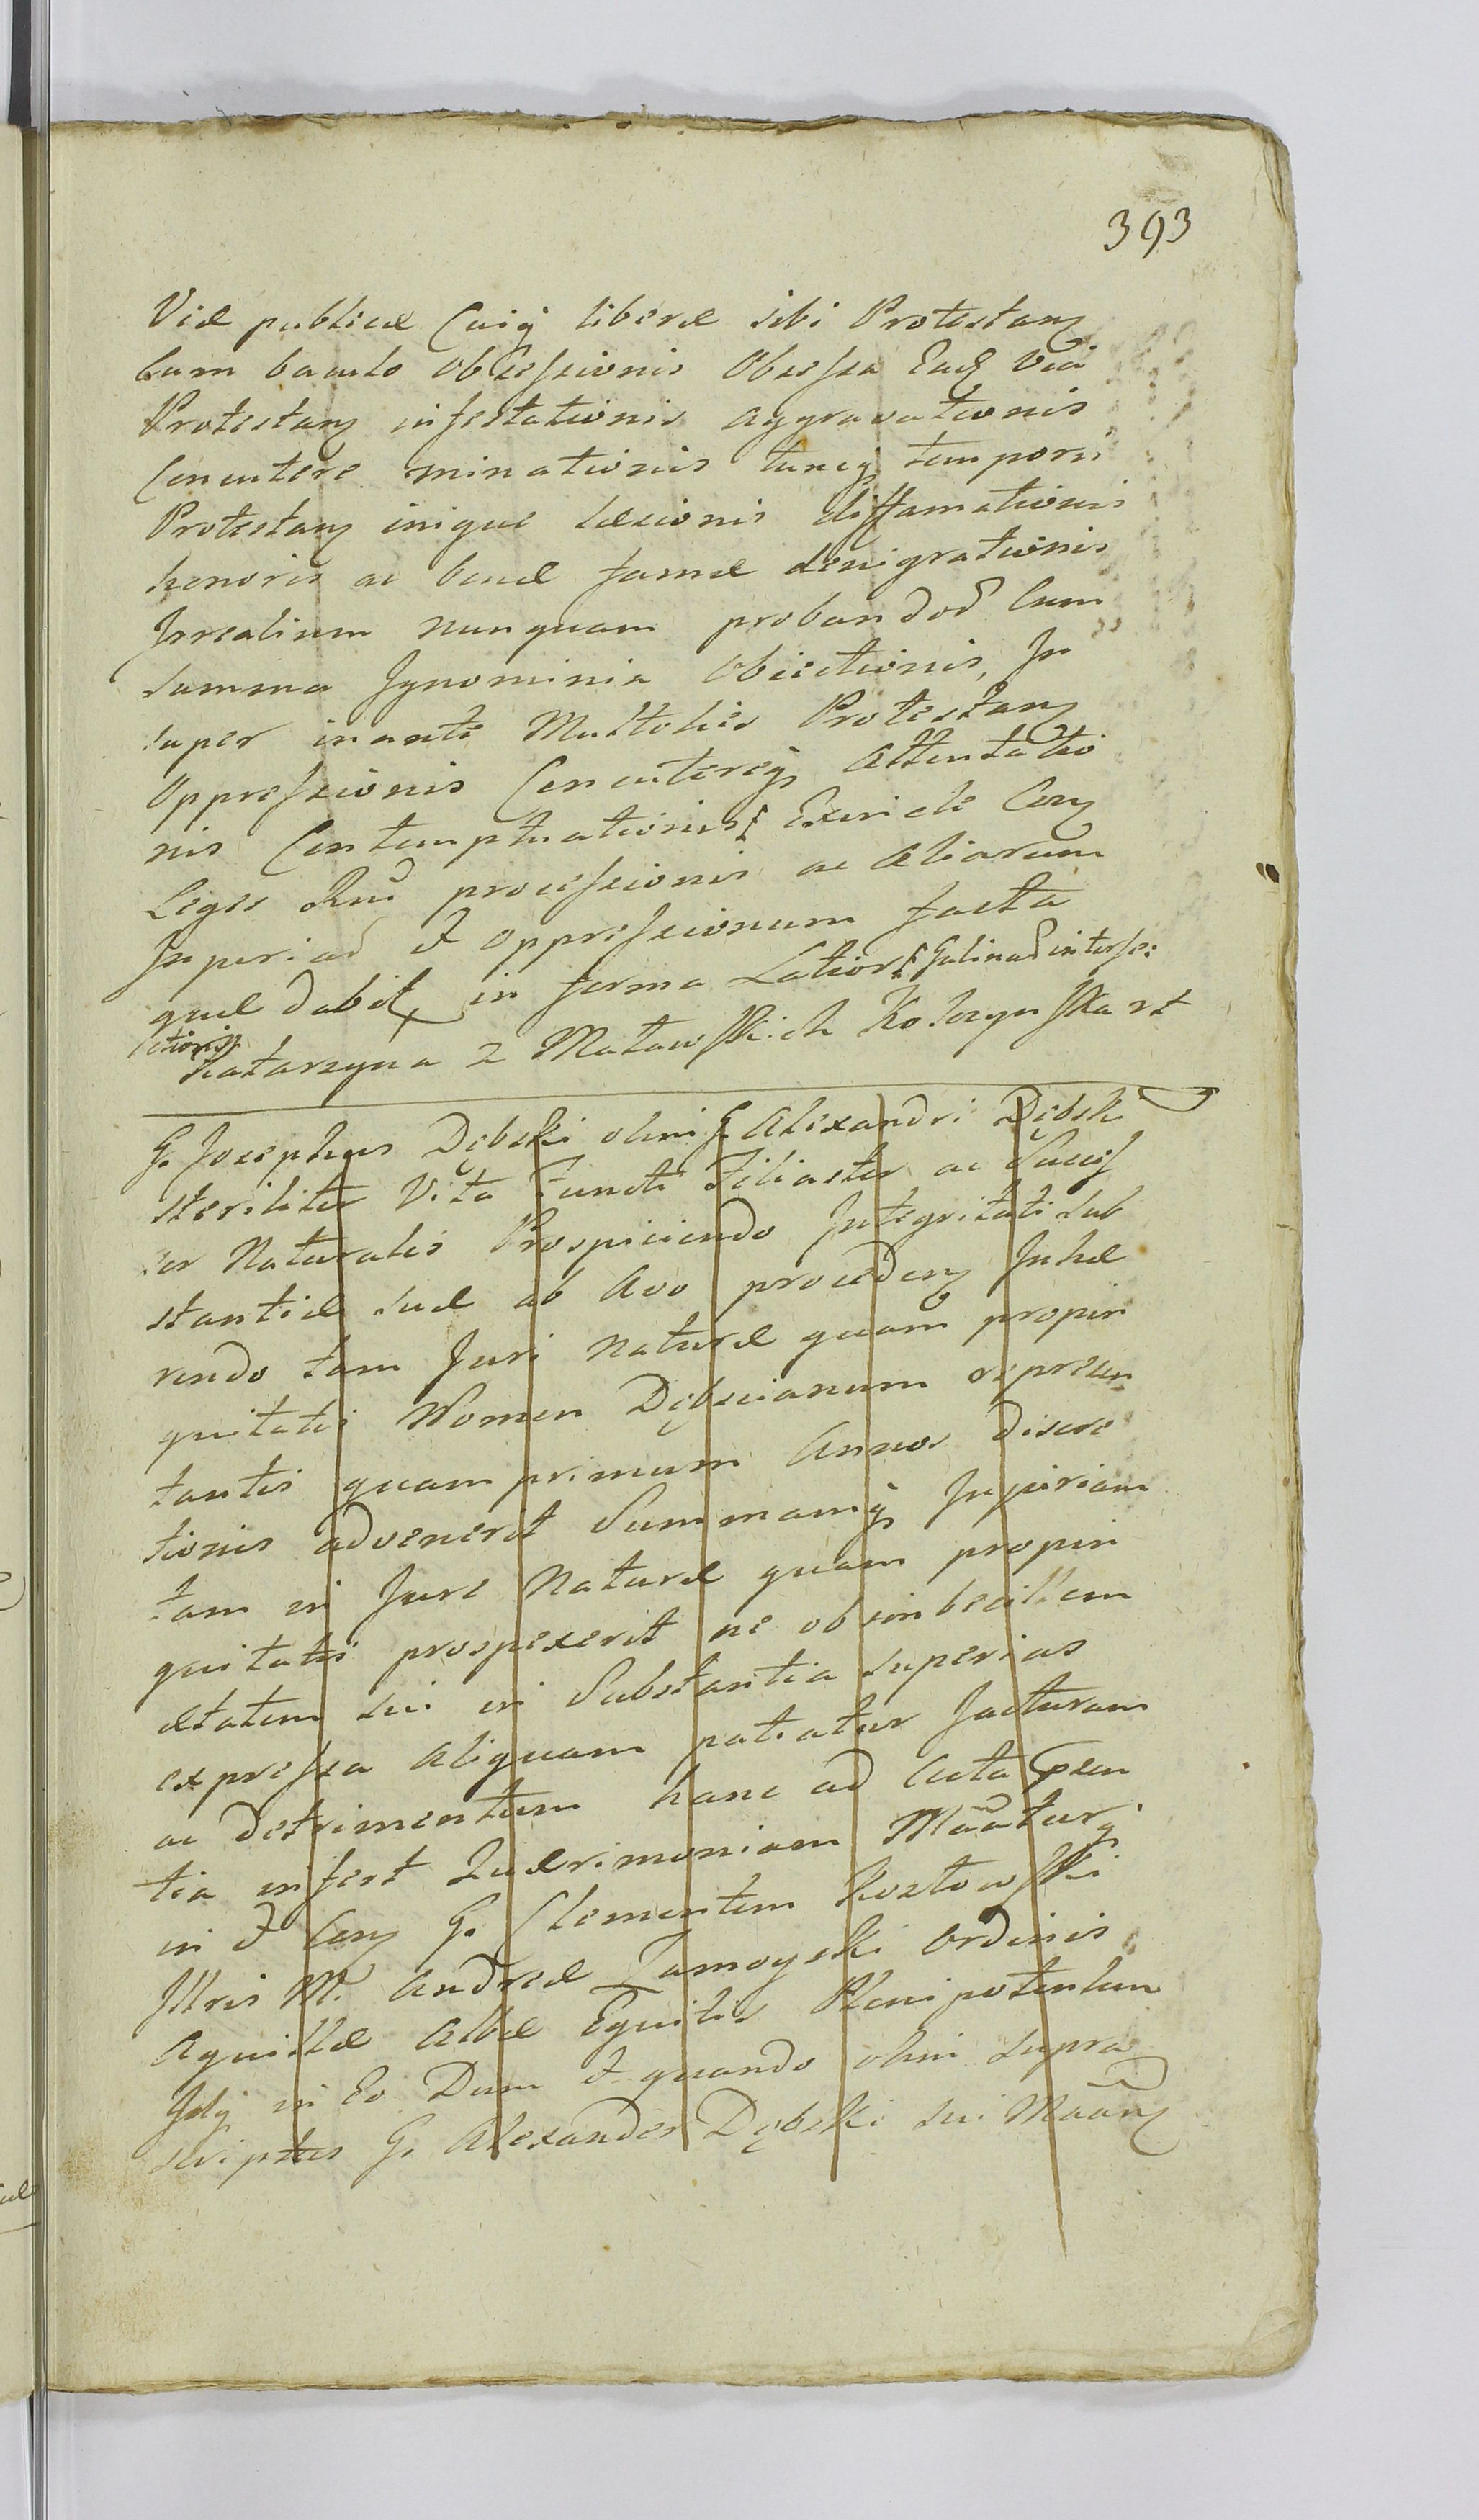 393
Viæ publicæ Cuiq liberæ sibi Protestanz
bam baculo obsessionis Obsessa Ead via
Protestanz infestationis aggravationis
Conentere minationis tuncq tempori
Protestanz inique læsionis diffamationis
honoris ac bonæ famæ denigrationis
Irrealium nunquam probandod Cum
summa Ignominia Obiectionis, In
super inante Multoties Protestanz
Oppressionis Conentereq attentatio
nis Contemptuationis Exinde Conz
Leges Rni processionis ac aliarum
Injuriad et oppressionum facta
quæ dabit in forma Latiori Galinad interfe:
ctionis
Katarzyna z Matawskich Kolczynska rt
G. Josephus Dębski olim G. Alexandri Dębski
steriliter Vita Functi Filiaster ac Succes
sor Naturalis Prospiciendo Integritati sub
stantiæ suæ ab Avo procedenz Inhæ
rendo tam Juri naturæ quam propin
quitatis Nomen Dębscianum repræsen
tantis quam primum Annos discre
tionis advenerit Summamq Injuriam
tam in Jure Naturæ quam propin
quitatis prospexerit ne ob imbecillem
ætatem sui in Substantia superius
expressa aliquam patiatur Jacturam
ac detrimentum hanc ad Acta præsen
tia infert Quærimoniam Maaturq
in et Conz G. Clementem Kozłowski
Illris M. Andreæ Zamoyski Ordinis
Aquilæ Albæ Equitis Plenipotentem
Idq in Eo Dum et quando olim supra
scriptus G. Alexander Dębski sui Maanz